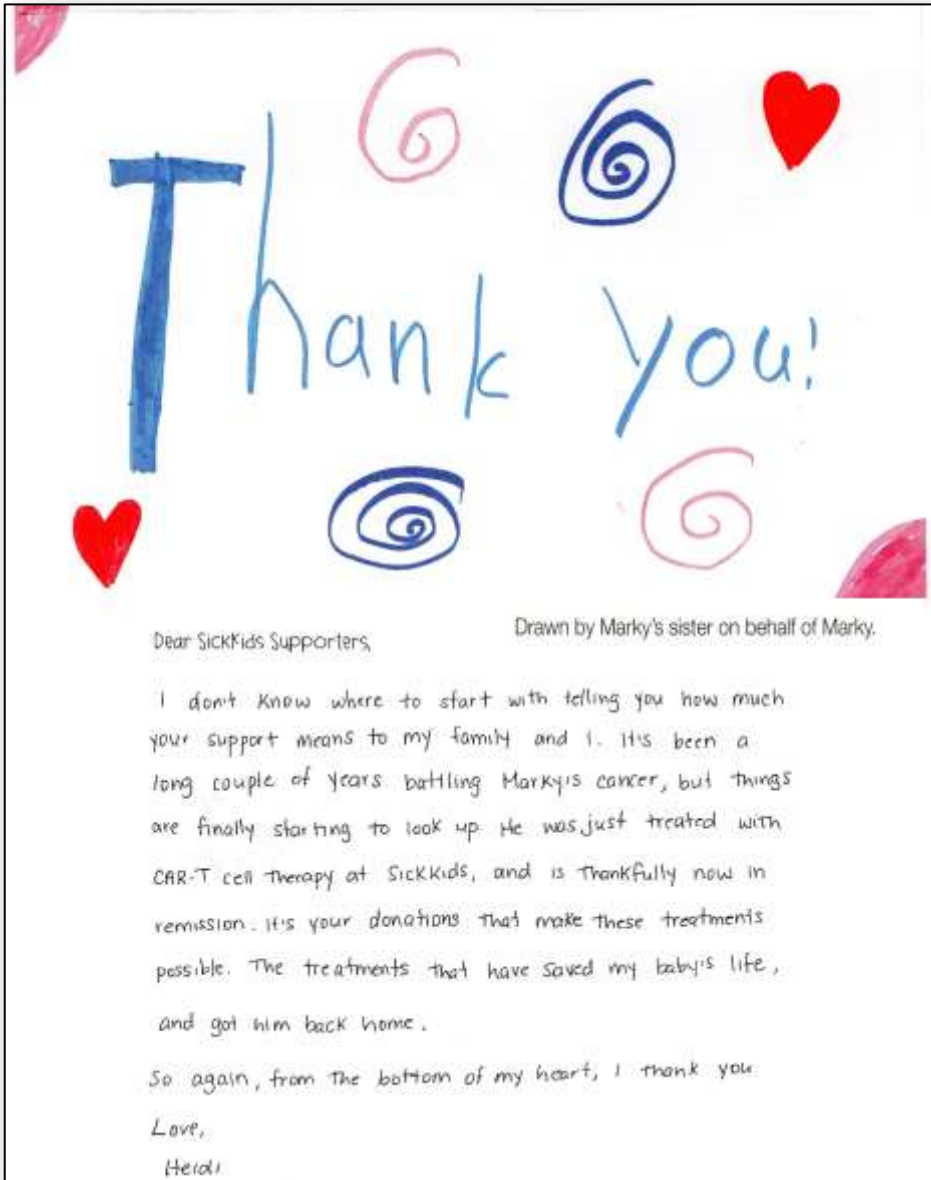 Thank you!
Drawn by Marky's sister on behalf of Marky.
Dear SickKids Supporters,
I don't know where to start with telling you how much
your support means to my family and I. It's been a
long couple of years battling Marky's cancer, but things
are finally starting to look up. He was just treated with
CAR-T cell therapy at SickKids, and is thankfully now in
remission. It's your donations that make these treatments
possible. The treatments that have saved my baby's life,
and got him back home.
So again, from the bottom of my heart, I thank you
Love,
Heidi